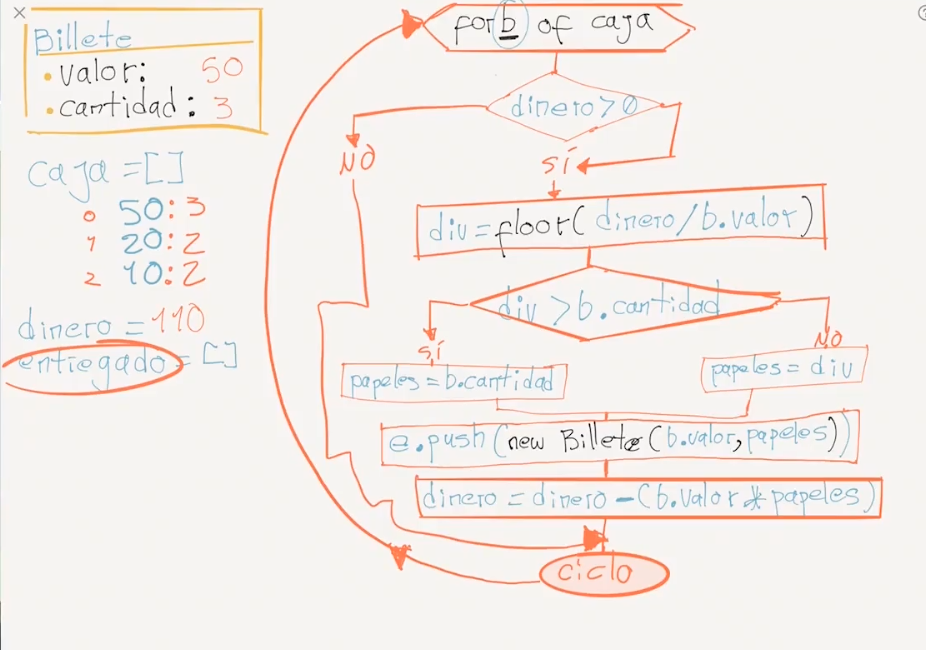 Billete
• valor: 50
• cantidad: 3
caja = []
0 50:3
1 20:2
2 10:2
dinero = 110
entregado = []
for b of caja
dinero > 0
NO
SÍ
div = floor( dinero/b.valor)
div > b.cantidad
SÍ
NO
papeles = b.cantidad
papeles = div
e.push(new Billete(b.valor, papeles))
dinero = dinero - (b.valor * papeles)
ciclo